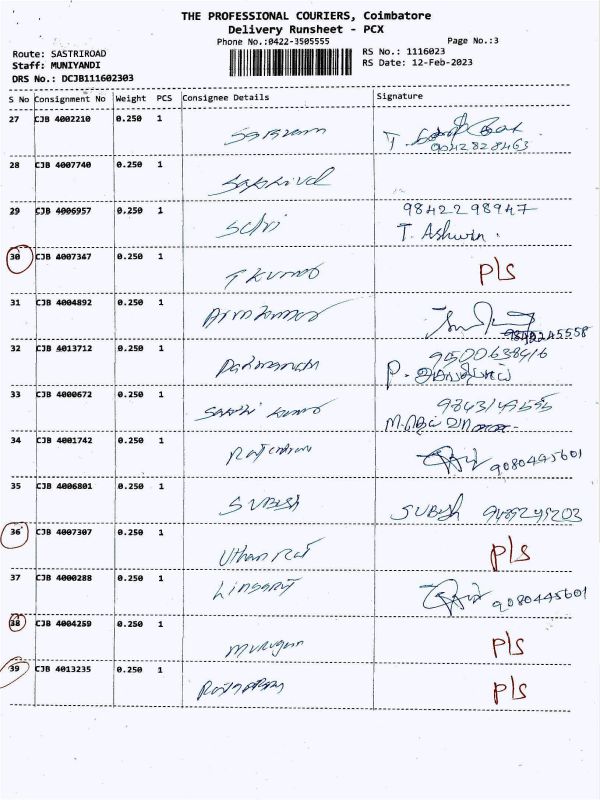 THE PROFESSIONAL COURIERS, Coimbatore
Delivery Runsheet - PCX
Phone No.:0422-3505555
Page No.:3
Route: SASTRIROAD
RS No.: 1116023
Staff: MUNIYANDI
RS Date: 12-Feb-2023
DRS No.: DCJB111602303
S No Consignment No Weight PCS Consignee Details Signature
27 CJB 4002210 0.250 1
9042828463
28 CJB 4007740 0.250 1
29 CJB 4006957 0.250 1 9842298947
Selvi T. Ashwin.
30 CJB 4007347 0.250 1 P/S
T Kumar
31 CJB 4004892 0.250 1
Arun Kumar
32 CJB 4013712 0.250 1 9500638416
P.
33 CJB 4000672 0.250 1
34 CJB 4001742 0.250 1
9080445601
35 CJB 4006801 0.250 1
SUBISH SUBISH
36 CJB 4007307 0.250 1 P/S
37 CJB 4000288 0.250 1
9080445601
38 CJB 4004259 0.250 1 P/S
Murugan
39 CJB 4013235 0.250 1 P/S